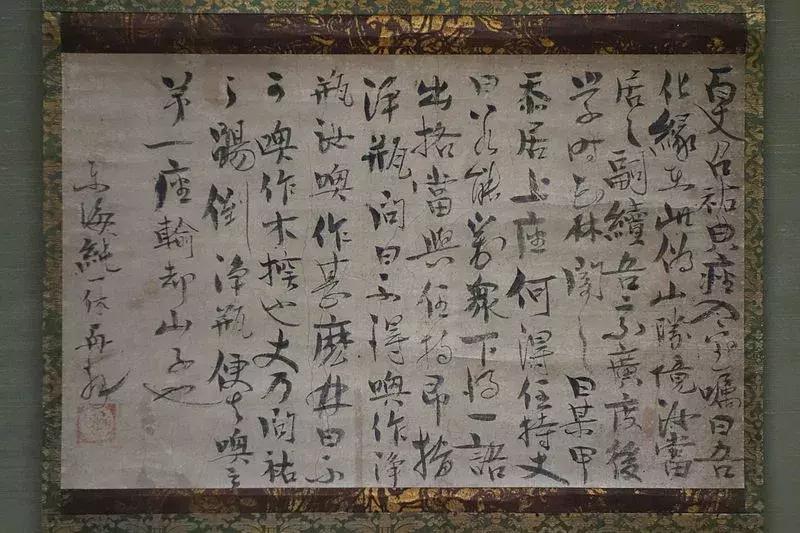 百丈召祐典座入室囑曰吾
化縁在此潙山勝境汝當
居之嗣續吾宗廣度後
学時花林聞之曰某甲
忝居上座何得住持丈
曰若能對衆下得一語
出格當與住持即指
淨瓶問曰不得喚作淨
瓶汝喚作甚麼林曰不
可喚作木𣔻也丈乃問祐
〻踢倒淨瓶便去
第一座輸却山子也
東海純一休